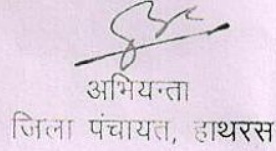 अभियन्ता
जिला पंचायत, हाथरस